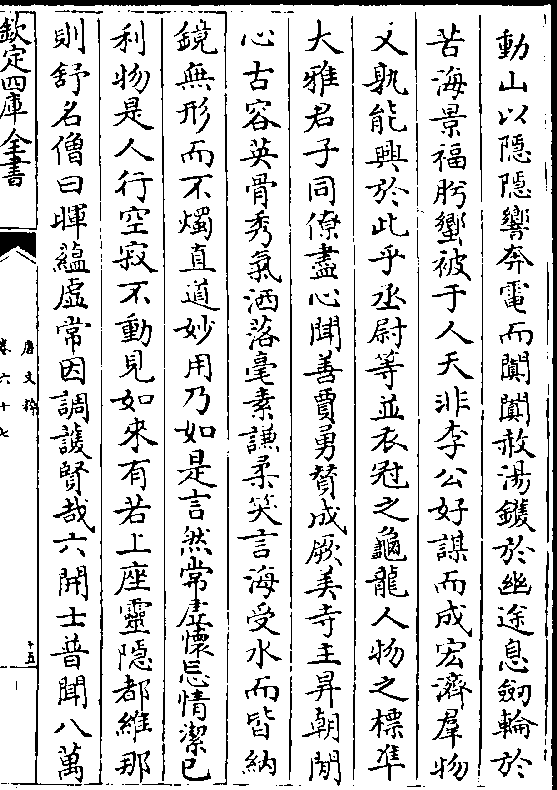 動山以隱隱響奔電而闐闐赦湯鑊於幽途息劒輪於
苦海景福肹蠁被于人天非李公好謀而成宏濟羣物
乂孰能興於此乎丞尉等並衣冠之龜龍人物之標準
大雅君子同僚盡心聞善賈勇贊成厥美寺主昇朝閒
心古容英骨秀氣洒落毫素謙柔笑言海受水而皆納
鏡無形而不燭直道妙用乃如是言然常虛懷忘情潔已
利物是人行空寂不動見如來有若上座靈隱都維那
則舒名僧曰暉蘊虛常因調護賢哉六開士普聞八萬
欽定四庫全書
唐文粹
卷六十七
十五